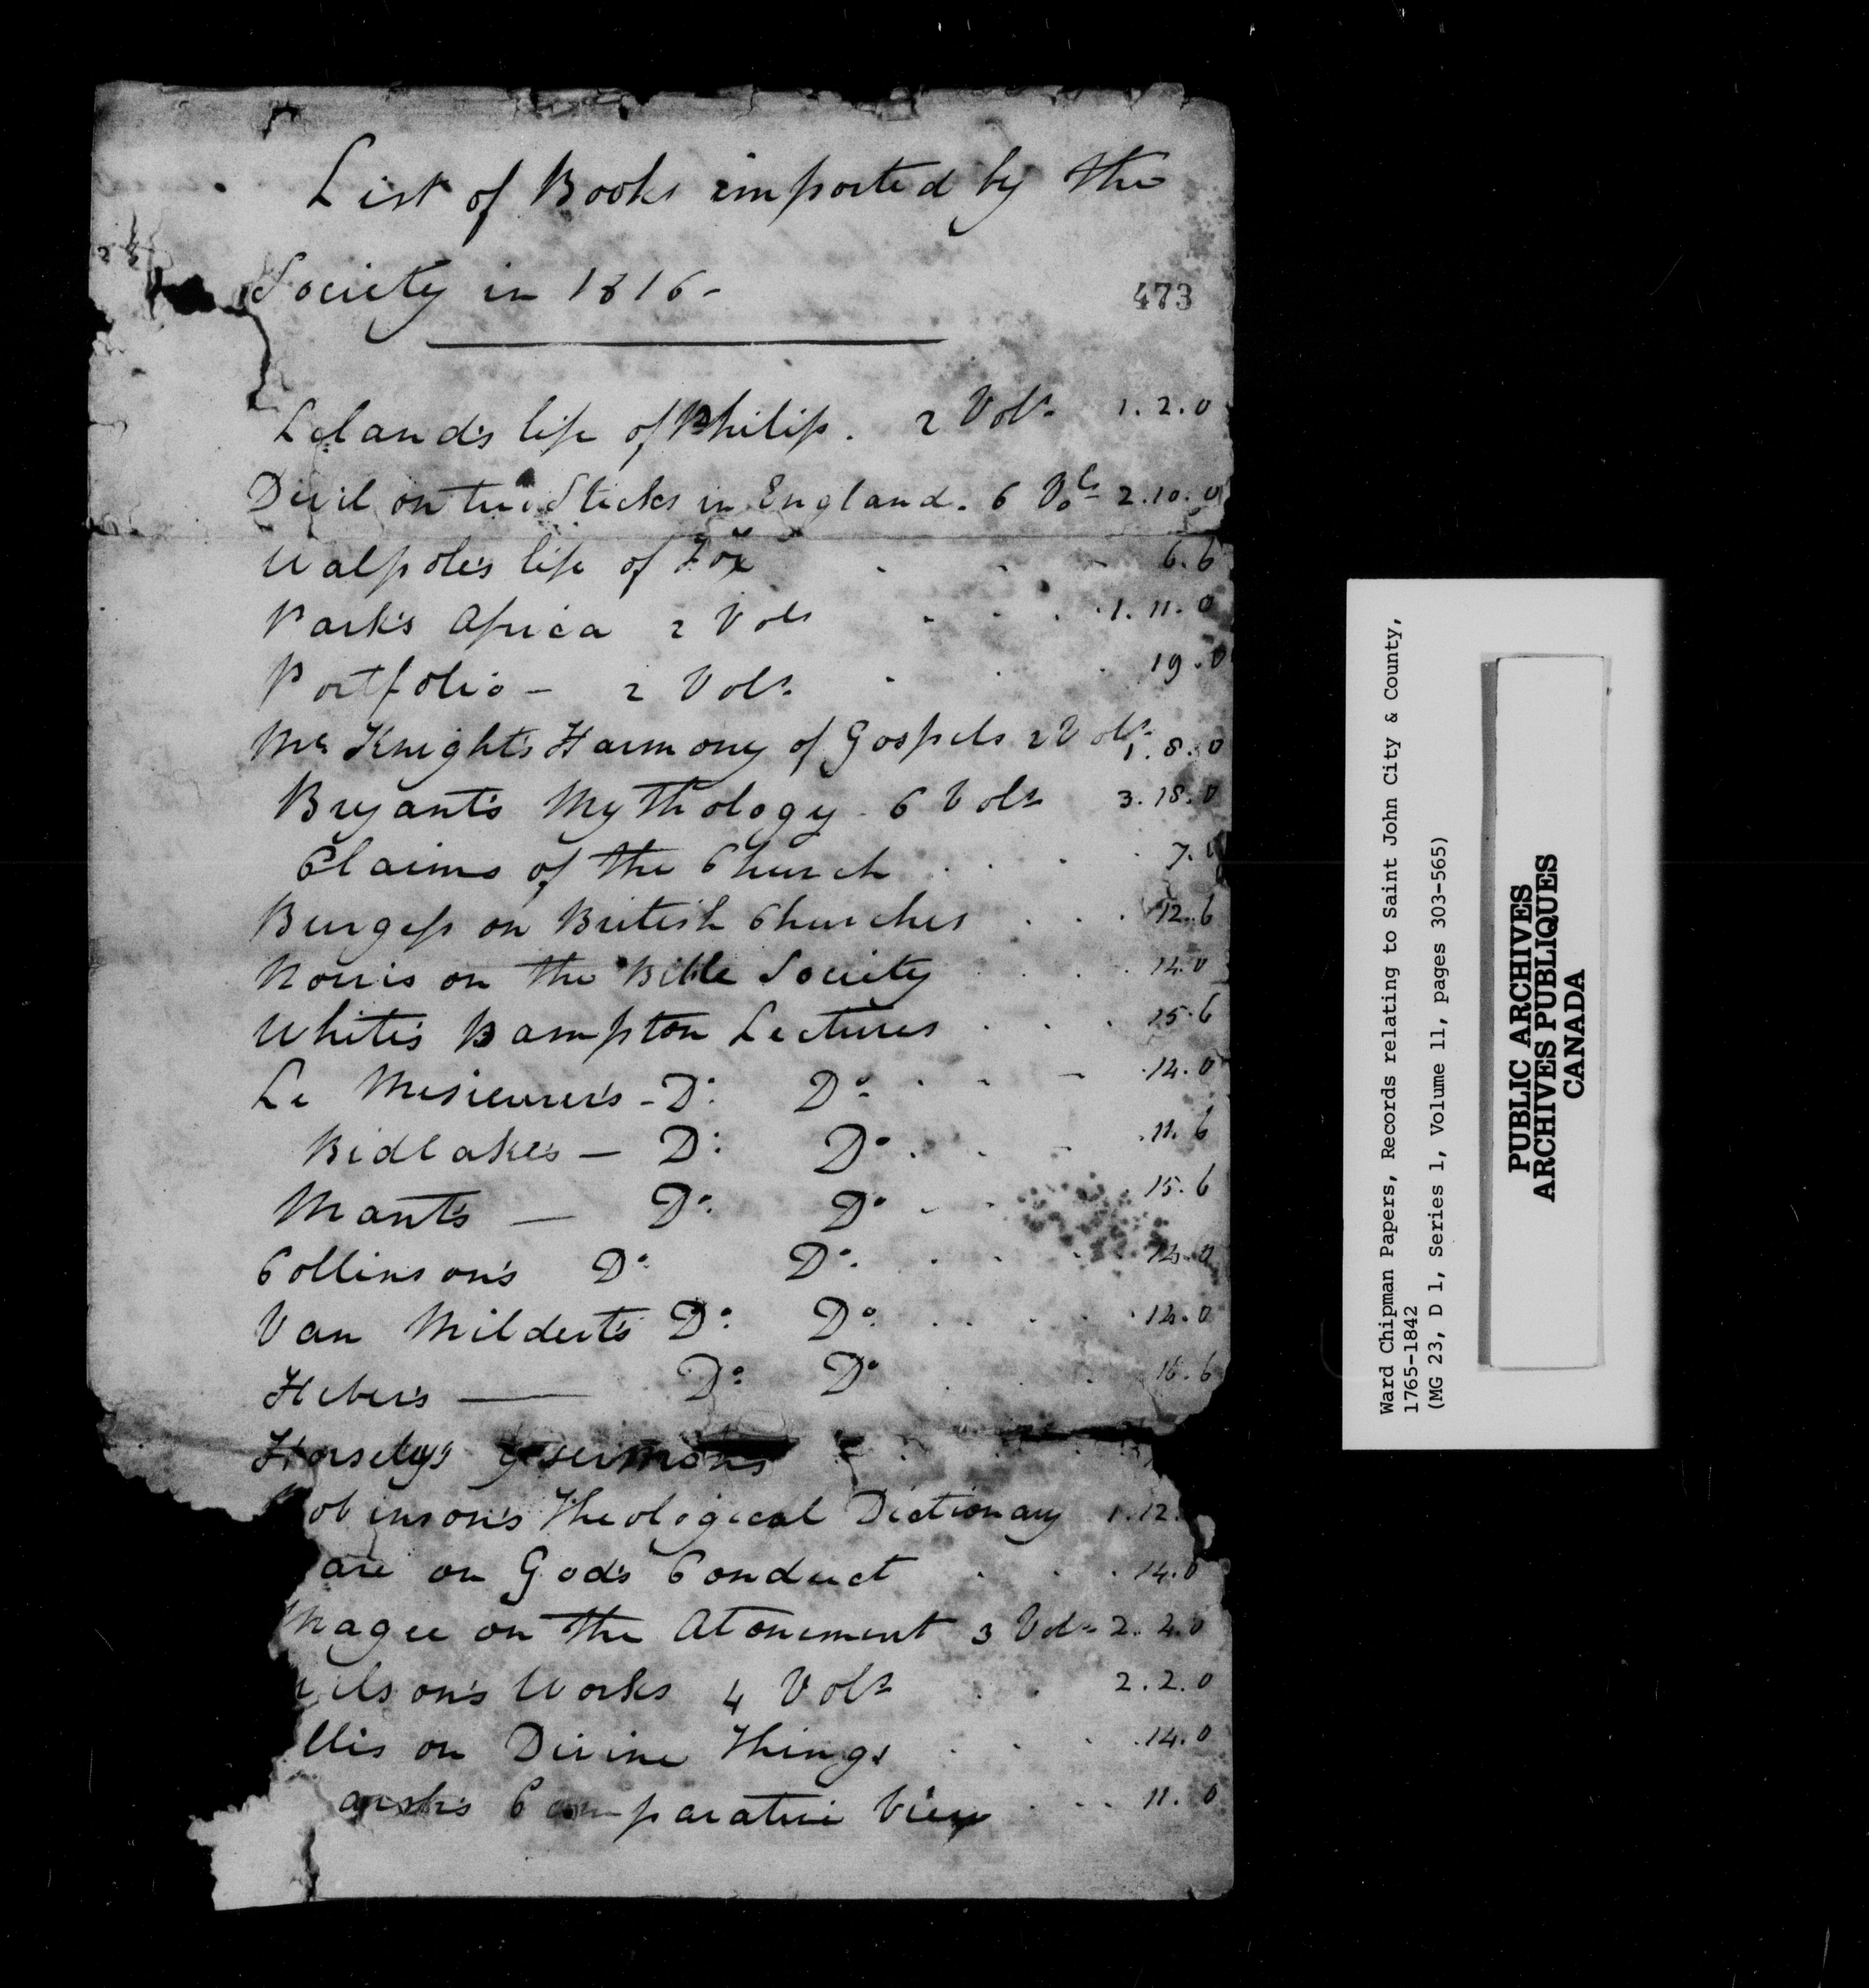 List of Books imported by the
Society in 1816-
473
Leland's life of Philip. 2 Vols 1.2.0
Devil on two Sticks in England. 6 Vols 2.10.0
Walpole's life of Fox 6.6
Park's Africa 2 Vols 1.11.0
Portfolio - 2 Vols 19.0
Mc Knight's Harmony of Gospels 2 Vols 1.8.0
Bryant's Mythology 6 Vols 3.18.0
Claims of the Church 7.
Burgess on British Churches 12.6
Norris on the Bible Society 14.0
White's Bampton Lectures 15.6
Le Mesieurer's - Do Do 14.0
Bidlake's - Do Do 11.6
Mant's - Do Do 15.6
Collinson's Do Do
Van Mildert's Do Do 14.0
Heber's - Do Do 16.6
Horseley's Sermons
obinson's Theological Dictionary 1.12.
are on God's Conduct 14.0
Magee on the Atonement 3 Vols 2.2.0
ilson's Works 4 Vols 2.2.0
llis on Divine Things 14.0
arsh's Comparative View 11.0
Ward Chipman Papers, Records relating to Saint John City & County,
1765-1842
(MG 23, D 1, Series 1, Volume 11, pages 303-565)
PUBLIC ARCHIVES
ARCHIVES PUBLIQUES
CANADA